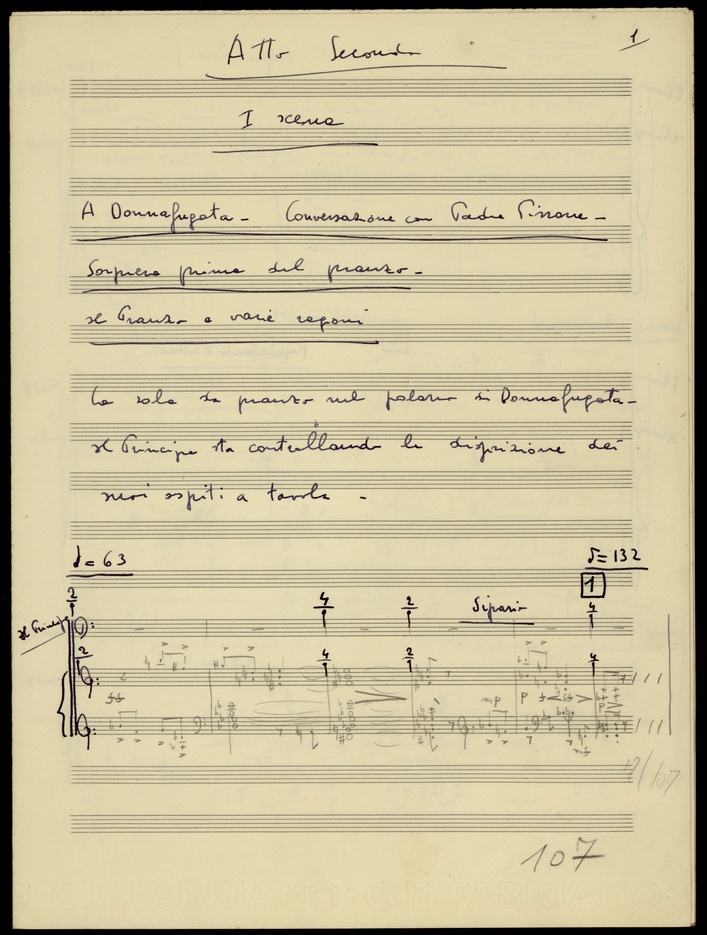 1
Atto Secondo
I scena
A Donnafugata - Conversazione con Padre Pirrone -
Sorpresa prima del pranzo -
Il Pranzo e varie ragioni
La sala da pranzo nel palazzo di Donnafugata -
Il Principe sta controllando la disposizione dei
suoi ospiti a tavola -
♩= 63
= 132
1
2 4 2 Sipario 4
Il Principe
2 4 2 4
ff mp p f
107
C.M. FABRIANO C.M. FABRIANO